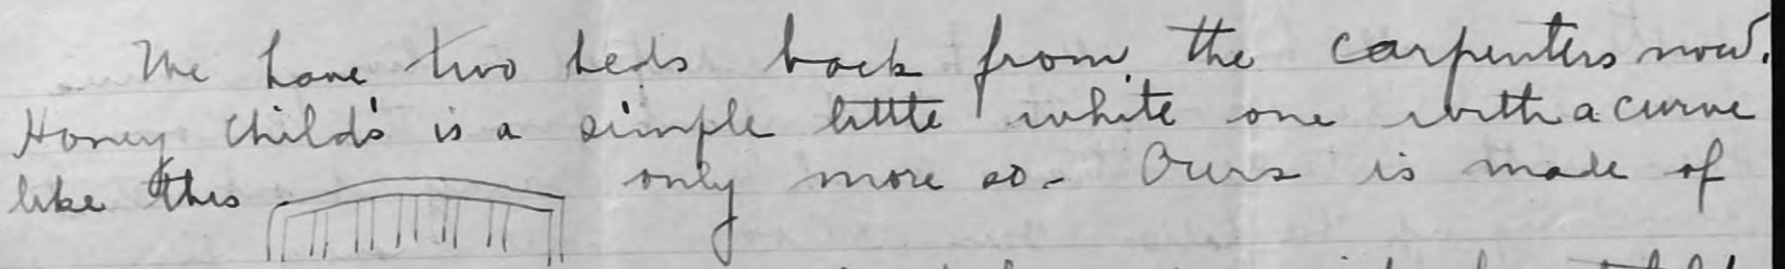 We have two beds back from the carpenters now.
Honey Child's is a simple little white one with a curve
like this only more so - Ours is made of